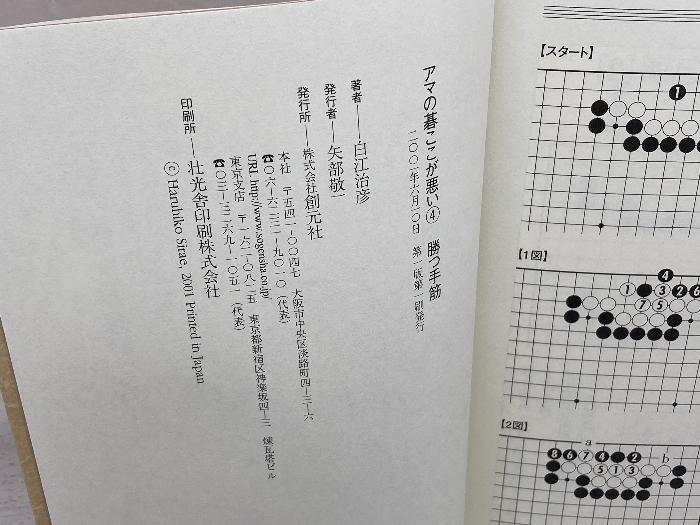 アマの碁ここが悪い④　勝つ手筋
二〇〇一年六月一〇日　第一版第一刷発行
著者——白江治彦
発行者——矢部敬一
発行所——株式会社創元社
本社　〒五四一-〇〇四七　大阪市中央区淡路町四-三-六
☎〇六-六二三一-九〇一〇（代表）
URL http://www.sogensha.co.jp/
東京支店　〒一六二-〇八二五　東京都新宿区神楽坂四-三　煉瓦塔ビル
☎〇三-三二六九-一〇五一（代表）
印刷所——壮光舎印刷株式会社
© Haruhiko Sirae, 2001 Printed in Japan
【スタート】
1
【1図】
4
1 3 2 6
7 5
【2図】
a
8 6 7 4 2 b
5 1 3